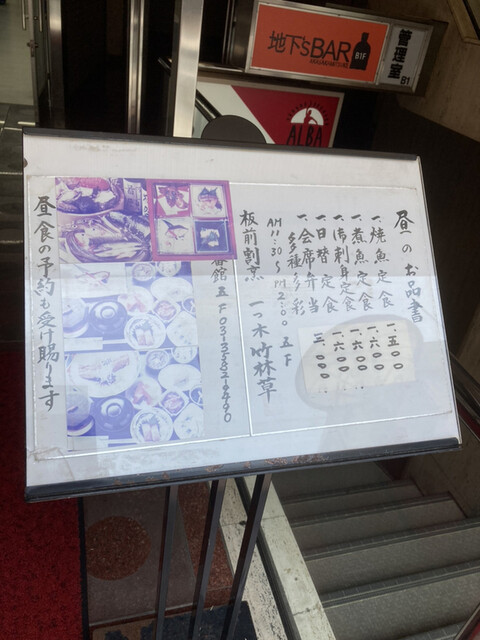 地下's BAR
B1F
管理室
B1
ALBA
昼のお品書
一、焼魚定食
一、煮魚定食
一、御刺身定食
一、日替定食
一、会席弁当
多種多彩
一、五〇〇
一、六〇〇
一、六〇〇
一、六〇〇
三、〇〇〇
AM11:30～PM2:00 五F
板前割烹 一つ木竹林草
番館 五F 03-3582-9490
昼食の予約も受け賜ります